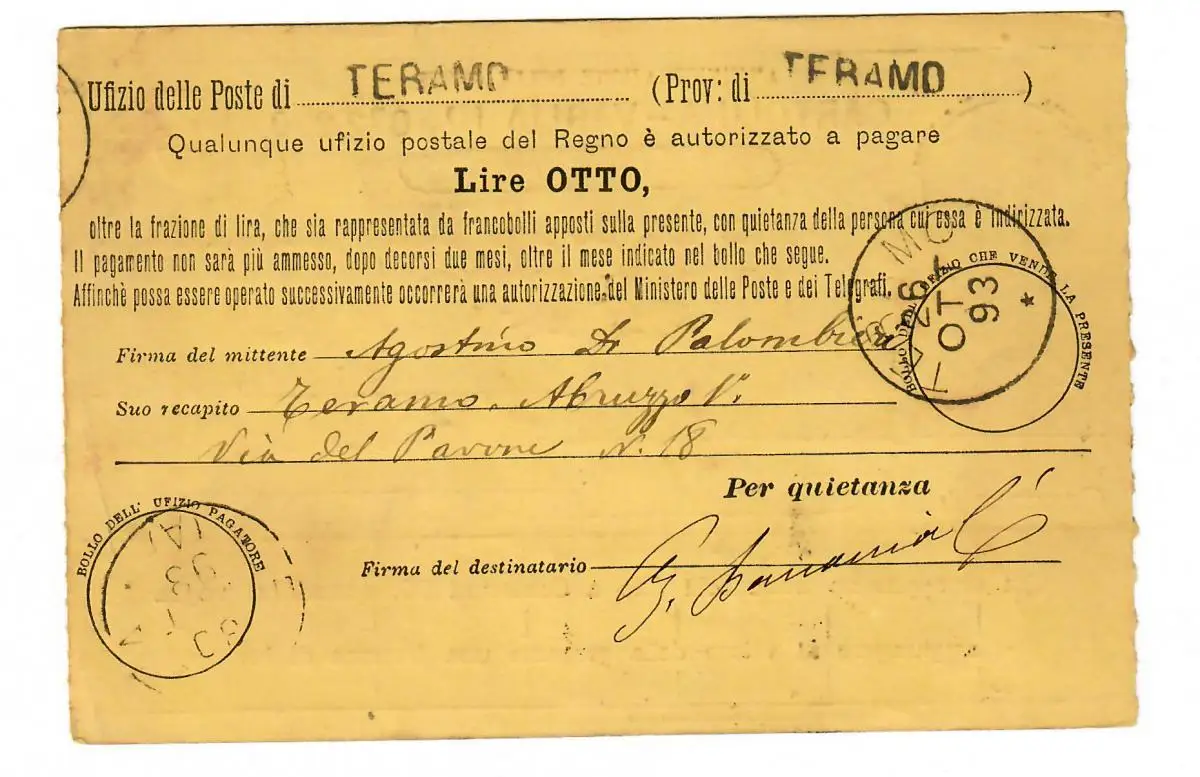 Ufizio delle Poste di TERAMO (Prov: di TERAMO)
Qualunque ufizio postale del Regno è autorizzato a pagare
Lire OTTO,
oltre la frazione di lira, che sia rappresentata da francobolli apposti sulla presente, con quietanza della persona cui essa è indirizzata.
Il pagamento non sarà più ammesso, dopo decorsi due mesi, oltre il mese indicato nel bollo che segue.
Affinchè possa essere operato successivamente occorrerà una autorizzazione del Ministero delle Poste e dei Telegrafi.
BOLLO DELL' UFIZIO CHE VENDE LA PRESENTE
TERAMO
26 OTT 93
Firma del mittente Agostino De Palombieri
Suo recapito Teramo, Abruzzo
Via del Pavone N. 18
Per quietanza
BOLLO DELL' UFIZIO PAGATORE
Firma del destinatario G.